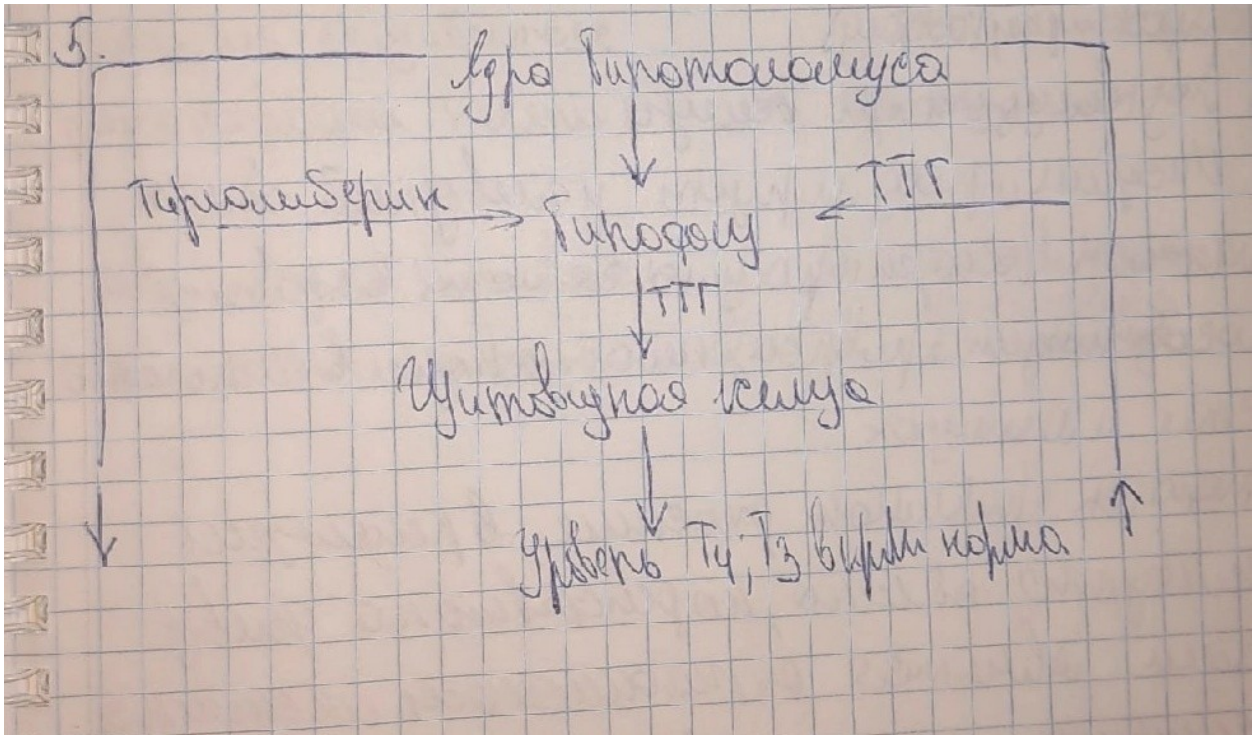 5.
Ядра Гипоталамуса
Тиролиберин Гипофиз ТТГ
ТТГ
Щитовидная железа
Уровень Т4, Т3 в крови норма